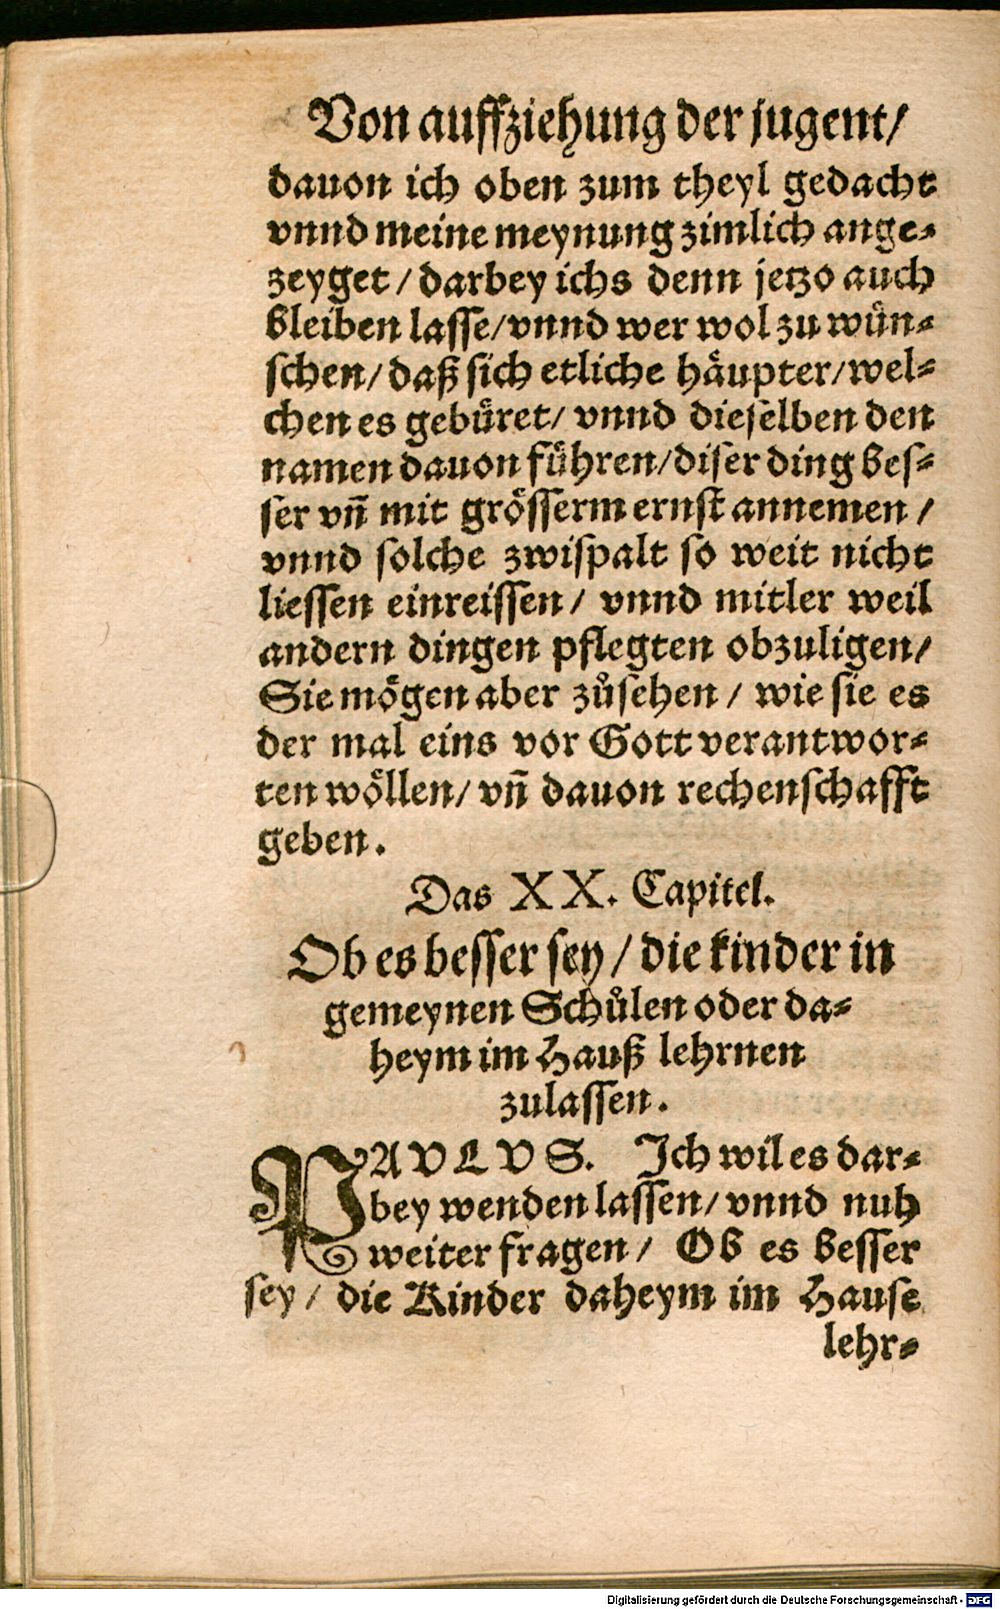 Von auffziehung der jugent/
dauon ich oben zum theyl gedacht
vnnd meine meynung zimlich ange⸗
zeyget / darbey ichs denn jetzo auch
bleiben lasse/vnnd wer wol zu wün⸗
schen/ daß sich etliche häupter/wel⸗
chen es gebüret/ vnnd dieselben den
namen dauon führen/diser ding bes⸗
ser vñ mit grösserm ernst annemen /
vnnd solche zwispalt so weit nicht
liessen einreissen/ vnnd mitler weil
andern dingen pflegten obzuligen/
Sie mögen aber zůsehen / wie sie es
der mal eins vor Gott verantwor⸗
ten wöllen/ vñ dauon rechenschafft
geben.
Das XX. Capitel.
Ob es besser sey / die kinder in
gemeynen Schůlen oder da⸗
heym im Hauß lehrnen
zulassen.
PAVLVS. Ich wil es dar⸗
bey wenden lassen/ vnnd nuh
weiter fragen/ Ob es besser
sey / die Kinder daheym im Hause
lehr⸗
Digitalisierung gefördert durch die Deutsche Forschungsgemeinschaft - DFG